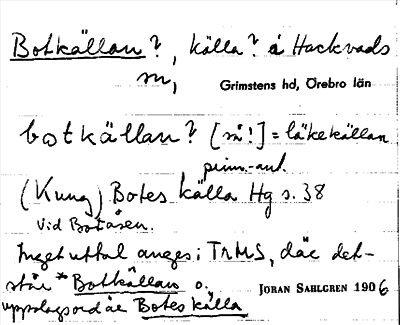 Botkällan?, källa? å Hackvads
sn,
Grimstens hd, Örebro län
botkällan? [så!] = läkekällan
prim.-ant.
(Kung) Botes källa Hg s. 38
vid Botåsen.
Inget uttal anges i TrMS, där det
står *Bottkällan o.
JÖRAN SAHLGREN 1906
uppslagsord är Botes källa